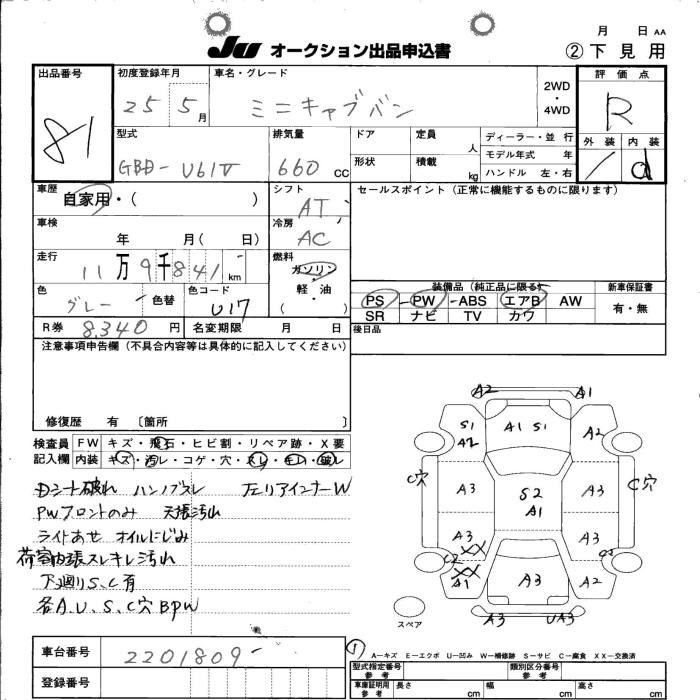 月 日 AA
JU オークション出品申込書 ②下見用
出品番号 初度登録年月 車名・グレード 2WD・4WD 評価点
81 25 5月 ミニキャブバン R
型式 排気量 ドア 定員 人 ディーラー・並行 外装 内装
GBD-U61V 660 CC 形状 積載 kg モデル年式 年 d
ハンドル 左・右
車歴 シフト セールスポイント (正常に機能するものに限ります)
自家用・( ) AT
車検 冷房
年 月( 日) AC
走行 燃料
11万9千841km ガソリン・軽油 ( )
色 色替 色コード 装備品 (純正品に限る) 新車保証書
グレー U17 PS PW ABS エアB AW 有・無
SR ナビ TV カワ
R券 8,340円 名変期限 月 日 後日品
注意事項申告欄 (不具合内容等は具体的に記入してください)
修復歴 有 〔箇所 〕
検査員記入欄 FW キズ・飛石・ヒビ割・リペア跡・X要
内装 キズ・汚レ・コゲ・穴・スレ・キレ・破レ
Dシート破れ ハンドルスレ 左リアインナーW
PWフロントのみ 天張汚れ
ライトあせ オイルにじみ
荷室内張スレキレ汚れ
下廻りS、C有
各A、U、S、C穴 BPW
A2 A1
S1 A2 A1 S1 A2
C穴 A3 S2 A1 A3 C穴
A3 XX A3
C2 XX A1 A3 A2
スペア A3 UA3
車台番号 2201809
登録番号
① A−キズ E−エクボ U−凹み W−補修跡 S−サビ C−腐食 XX−交換済
型式指定番号 参考 類別区分番号 参考
車庫証明用 参考 長さ cm 幅 cm 高さ cm